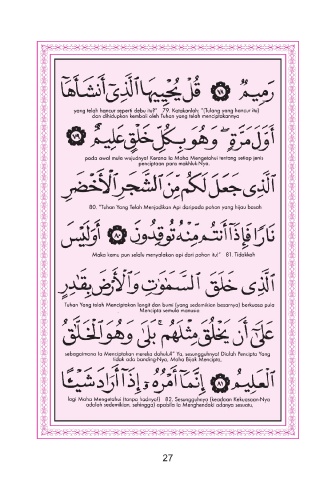 رَمِيمٌ ۝٧٨ قُلْ يُحْيِيهَا الَّذِي أَنْشَأَهَا
yang telah hancur seperti debu itu?" 79. Katakanlah: "(Tulang yang hancur itu)
dan dihidupkan kembali oleh Tuhan yang telah menciptakannya
أَوَّلَ مَرَّةٍ ۖ وَهُوَ بِكُلِّ خَلْقٍ عَلِيمٌ ۝٧٩
pada awal mula wujudnya! Kerana Ia Maha Mengetahui tentang setiap jenis
penciptaan para makhluk-Nya.
الَّذِي جَعَلَ لَكُمْ مِنَ الشَّجَرِ الْأَخْضَرِ
80. "Tuhan Yang Telah Menjadikan Api daripada pohon yang hijau basah
نَارًا فَإِذَا أَنْتُمْ مِنْهُ تُوقِدُونَ ۝٨٠ أَوَلَيْسَ
Maka kamu pun selalu menyalakan api dari pohon itu!" 81. Tidakkah
الَّذِي خَلَقَ السَّمَاوَاتِ وَالْأَرْضَ بِقَادِرٍ
Tuhan Yang telah Menciptakan langit dan bumi (yang sedemikian besarnya) berkuasa pula
Mencipta semula manusia
عَلَىٰ أَنْ يَخْلُقَ مِثْلَهُمْ ۚ بَلَىٰ وَهُوَ الْخَلَّاقُ
sebagaimana Ia Menciptakan mereka dahulu?" Ya, sesungguhnya! Dialah Pencipta Yang
tidak ada banding-Nya, Maha Bijak Mencipta,
الْعَلِيمُ ۝٨١ إِنَّمَا أَمْرُهُ إِذَا أَرَادَ شَيْئًا
lagi Maha Mengetahui (tanpa had-nya)! 82. Sesungguhnya (keadaan Kekuasaan-Nya
adalah sedemikian, sehingga) apabila Ia Menghendaki adanya sesuatu,
27